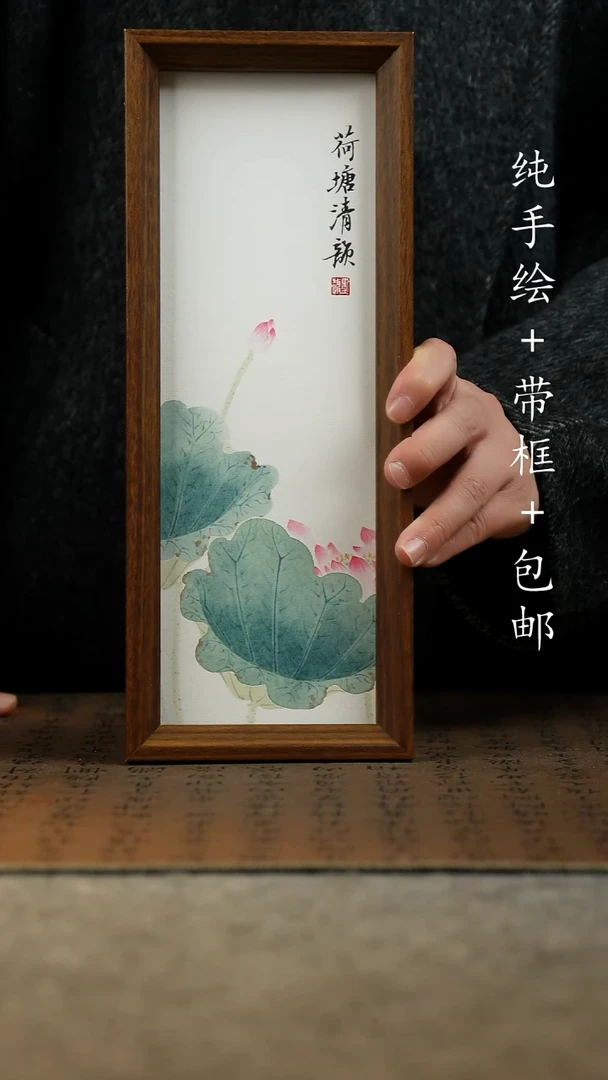 纯手绘+带框+包邮
荷塘清韻